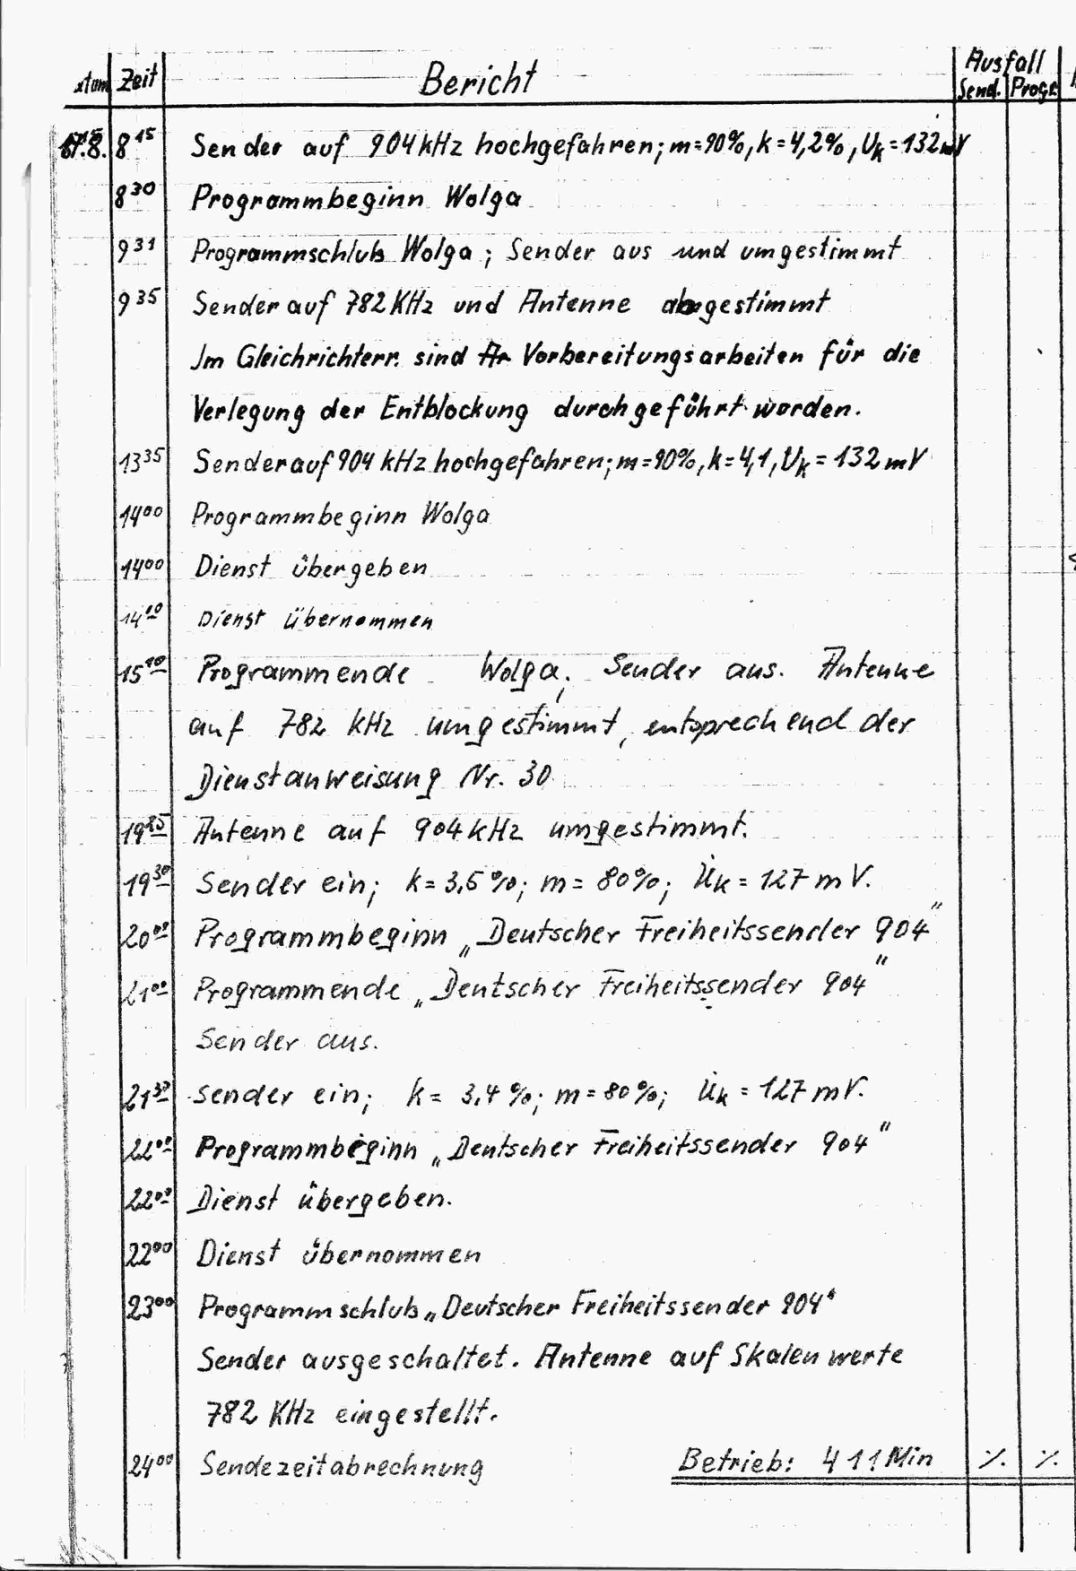 Zeit Bericht Ausfall
Send. Progr.
17.8. 8 15 Sender auf 904 kHz hochgefahren; m=90%, k=4,2%, Uk=132mV
8 30 Programmbeginn Wolga
9 31 Programmschluß Wolga; Sender aus und umgestimmt
9 35 Sender auf 782 KHz und Antenne abgestimmt
Im Gleichrichterr. sind Vorbereitungsarbeiten für die
Verlegung der Entblockung durchgeführt worden.
13 35 Sender auf 904 kHz hochgefahren; m=90%, k=4,1, Uk=132 mV
14 00 Programmbeginn Wolga
14 00 Dienst übergeben
14 Dienst übernommen
15 10 Programmende Wolga; Sender aus. Antenne
auf 782 kHz umgestimmt, entsprechend der
Dienstanweisung Nr. 30
19 25 Antenne auf 904 kHz umgestimmt.
19 30 Sender ein; k=3,5%; m=80%; Uk=127 mV.
20 00 Programmbeginn „Deutscher Freiheitssender 904"
21 00 Programmende „Deutscher Freiheitssender 904"
Sender aus.
21 30 Sender ein; k= 3,4%; m=80%; Uk=127 mV.
22 00 Programmbeginn „Deutscher Freiheitssender 904"
22 00 Dienst übergeben.
22 00 Dienst übernommen
23 00 Programmschluß „Deutscher Freiheitssender 904"
Sender ausgeschaltet. Antenne auf Skalenwerte
782 KHz eingestellt.
24 00 Sendezeitabrechnung Betrieb: 411 Min ⁒ ⁒